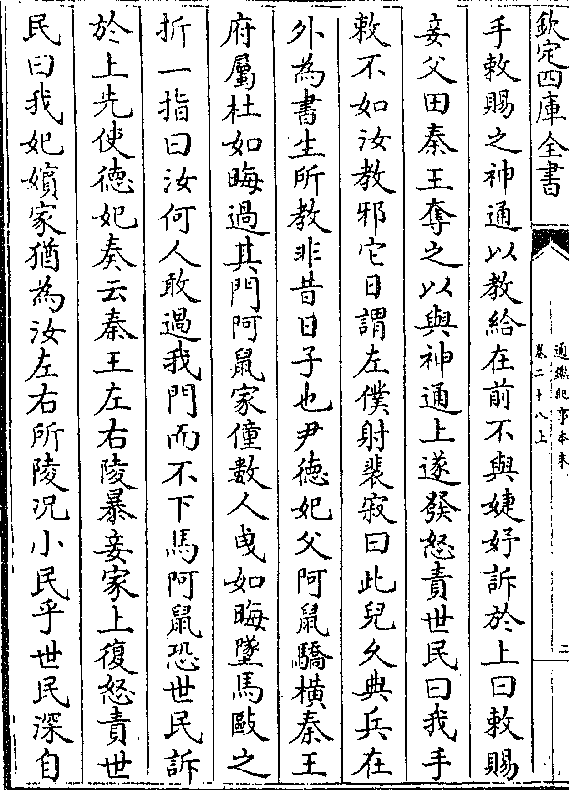 欽定四庫全書
通鑑紀事本末
卷二十八上
二
手敕賜之神通以教給在前不與婕妤訴於上曰敕賜
妾父田秦王奪之以與神通上遂發怒責世民曰我手
敕不如汝教邪它日謂左僕射裴寂曰此兒久典兵在
外為書生所教非昔日子也尹德妃父阿鼠驕橫秦王
府屬杜如晦過其門阿鼠家僮數人曳如晦墜馬毆之
折一指曰汝何人敢過我門而不下馬阿鼠恐世民訴
於上先使德妃奏云秦王左右陵暴妾家上復怒責世
民曰我妃嬪家猶為汝左右所陵況小民乎世民深自